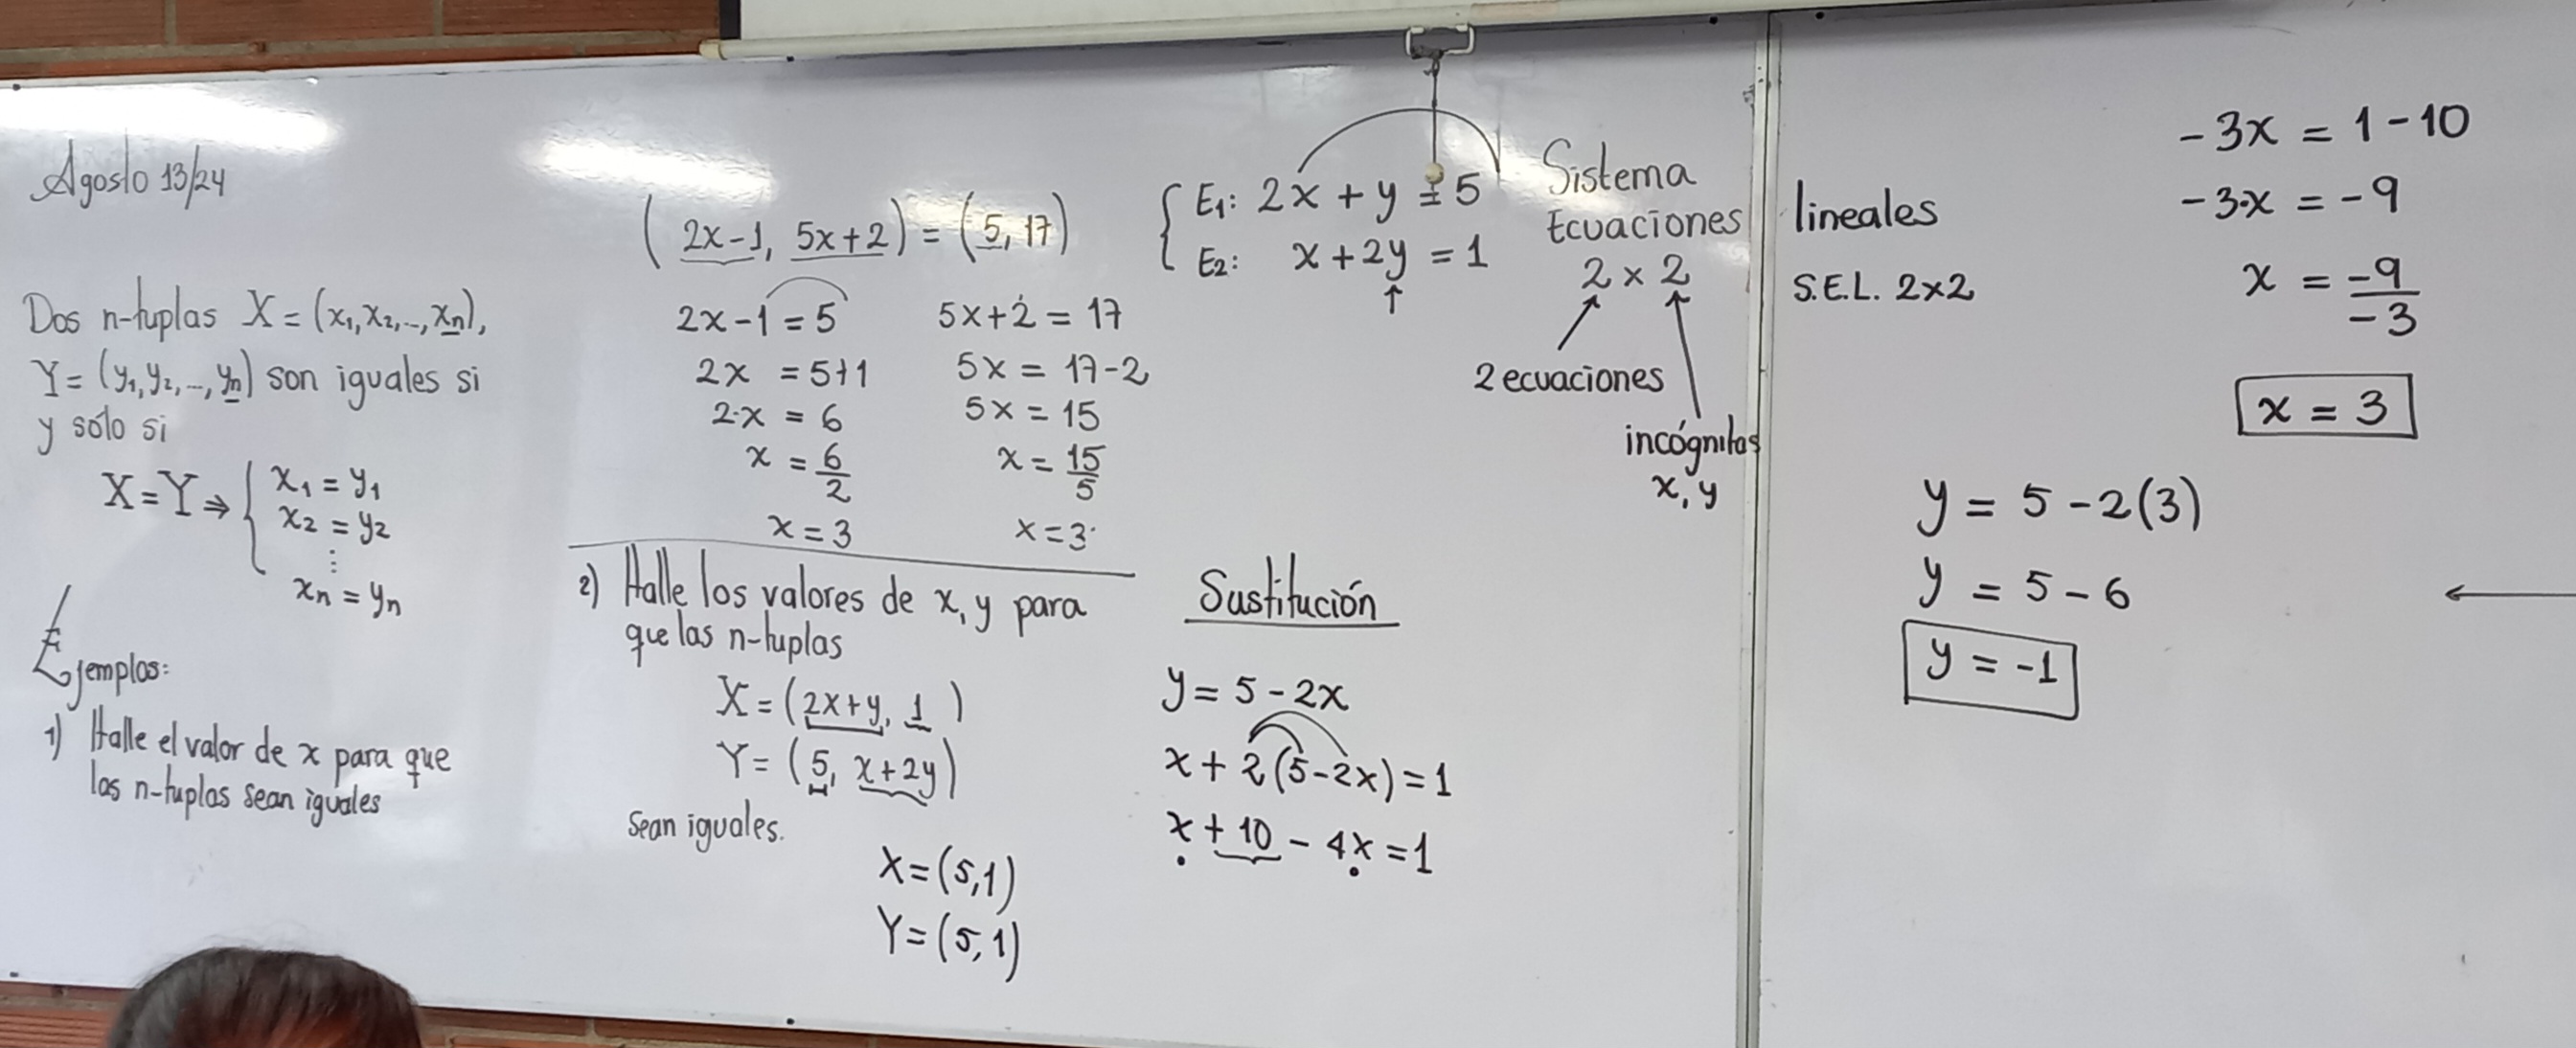 Agosto 13/24
Dos n-tuplas X = (x₁, x₂, .., xₙ),
Y = (y₁, y₂, .., yₙ) son iguales si
y sólo si
X = Y ⇒ { x₁ = y₁
x₂ = y₂
⋮
xₙ = yₙ
Ejemplos:
1) Halle el valor de x para que
las n-tuplas sean iguales
(2x-1, 5x+2) = (5, 17)
2x-1 = 5
2x = 5+1
2·x = 6
x = 6/2
x = 3
5x+2 = 17
5x = 17-2
5x = 15
x = 15/5
x = 3
2) Halle los valores de x, y para
que las n-tuplas
X = (2x+y, 1)
Y = (5, x+2y)
Sean iguales.
X = (5,1)
Y = (5,1)
{ E₁: 2x + y = 5
E₂: x + 2y = 1
↑
Sistema
Ecuaciones lineales
2 x 2
S.E.L. 2x2
2 ecuaciones
incógnitas
x, y
Sustitución
y = 5 - 2x
x + 2(5-2x) = 1
x + 10 - 4x = 1
-3x = 1 - 10
-3·x = -9
x = -9/-3
x = 3
y = 5 - 2(3)
y = 5 - 6
y = -1
←